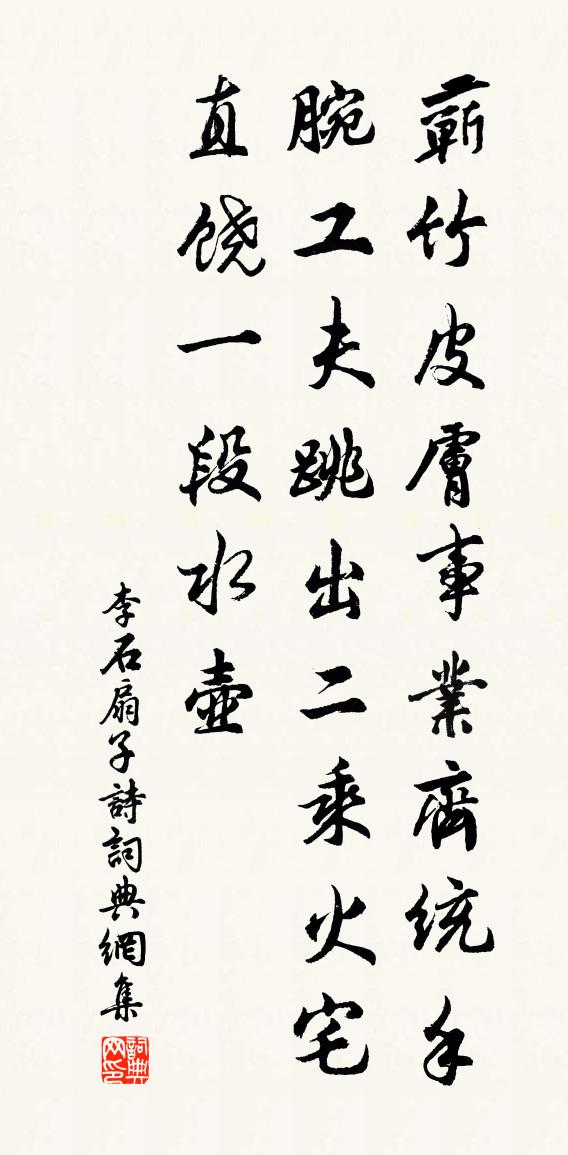 蘄竹皮膚事業齊紈手
腕工夫跳出二乘火宅
直饒一段水壺
李石扇子詩詞典網集
詞典网印